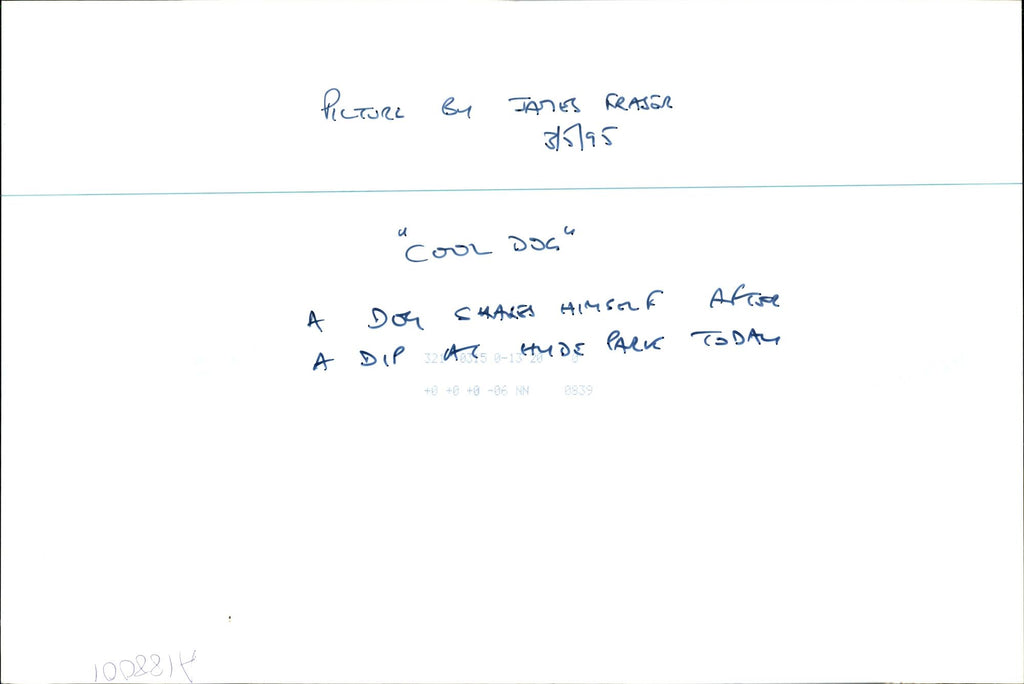 PICTURE BY JAMES FRASER
3/5/95
"COOL DOG"
A DOG SHAKES HIMSELF AFTER
A DIP AT HYDE PARK TODAY
+0 +0 +0 -06 NN 0939